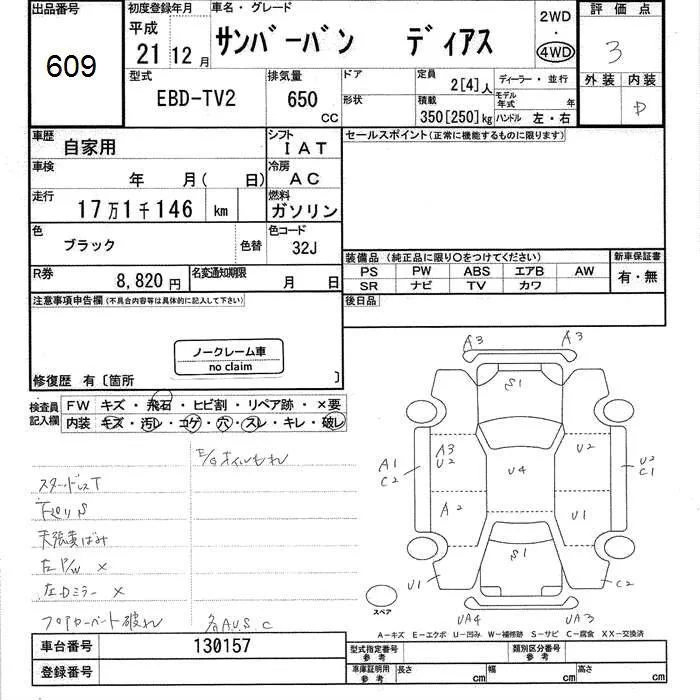 出品番号
609
初度登録年月
平成
21 12月
車名・グレード
サンバーバン ディアス
2WD
・
4WD
評価点
3
外装 内装
D
型式
EBD-TV2
排気量
650
cc
ドア
形状
定員
2[4]人
積載
350[250]kg
ディーラー・並行
モデル年式 年
ハンドル 左・右
車歴
自家用
シフト
IAT
車検
年 月( 日)
冷房
AC
走行
17万1千146 km
燃料
ガソリン
色
ブラック
色替
色コード
32J
R券
8,820円
名変通知期限
月 日
セールスポイント(正常に機能するものに限ります)
装備品(純正品に限り○をつけてください)
PS PW ABS エアB AW
SR ナビ TV カワ
新車保証書
有・無
後日品
注意事項申告欄(不具合内容等は具体的に記入して下さい)
ノークレーム車
no claim
修復歴 有〔箇所 〕
検査員記入欄
FW キズ・飛石・ヒビ割・リペア跡・×要
内装 キズ・汚レ・コゲ・穴・スレ・キレ・破レ
E/Gオイルもれ
スタッドレスT
下廻りS
左P/W ×
左Dミラー ×
フロアカーペット破れ
各AUS C
A3 A3
S1
A1
C2
A3
U2
U2
U2
C1
U4
A2
U1
S1
U1
C2
UA4 UA3
スペア
A-キズ E-エクボ U-凹み W-補修跡 S-サビ C-腐食 XX-交換済
車台番号
130157
登録番号
型式指定番号
参考
類別区分番号
参考
車庫証明用
参考
長さ cm
幅 cm
高さ cm